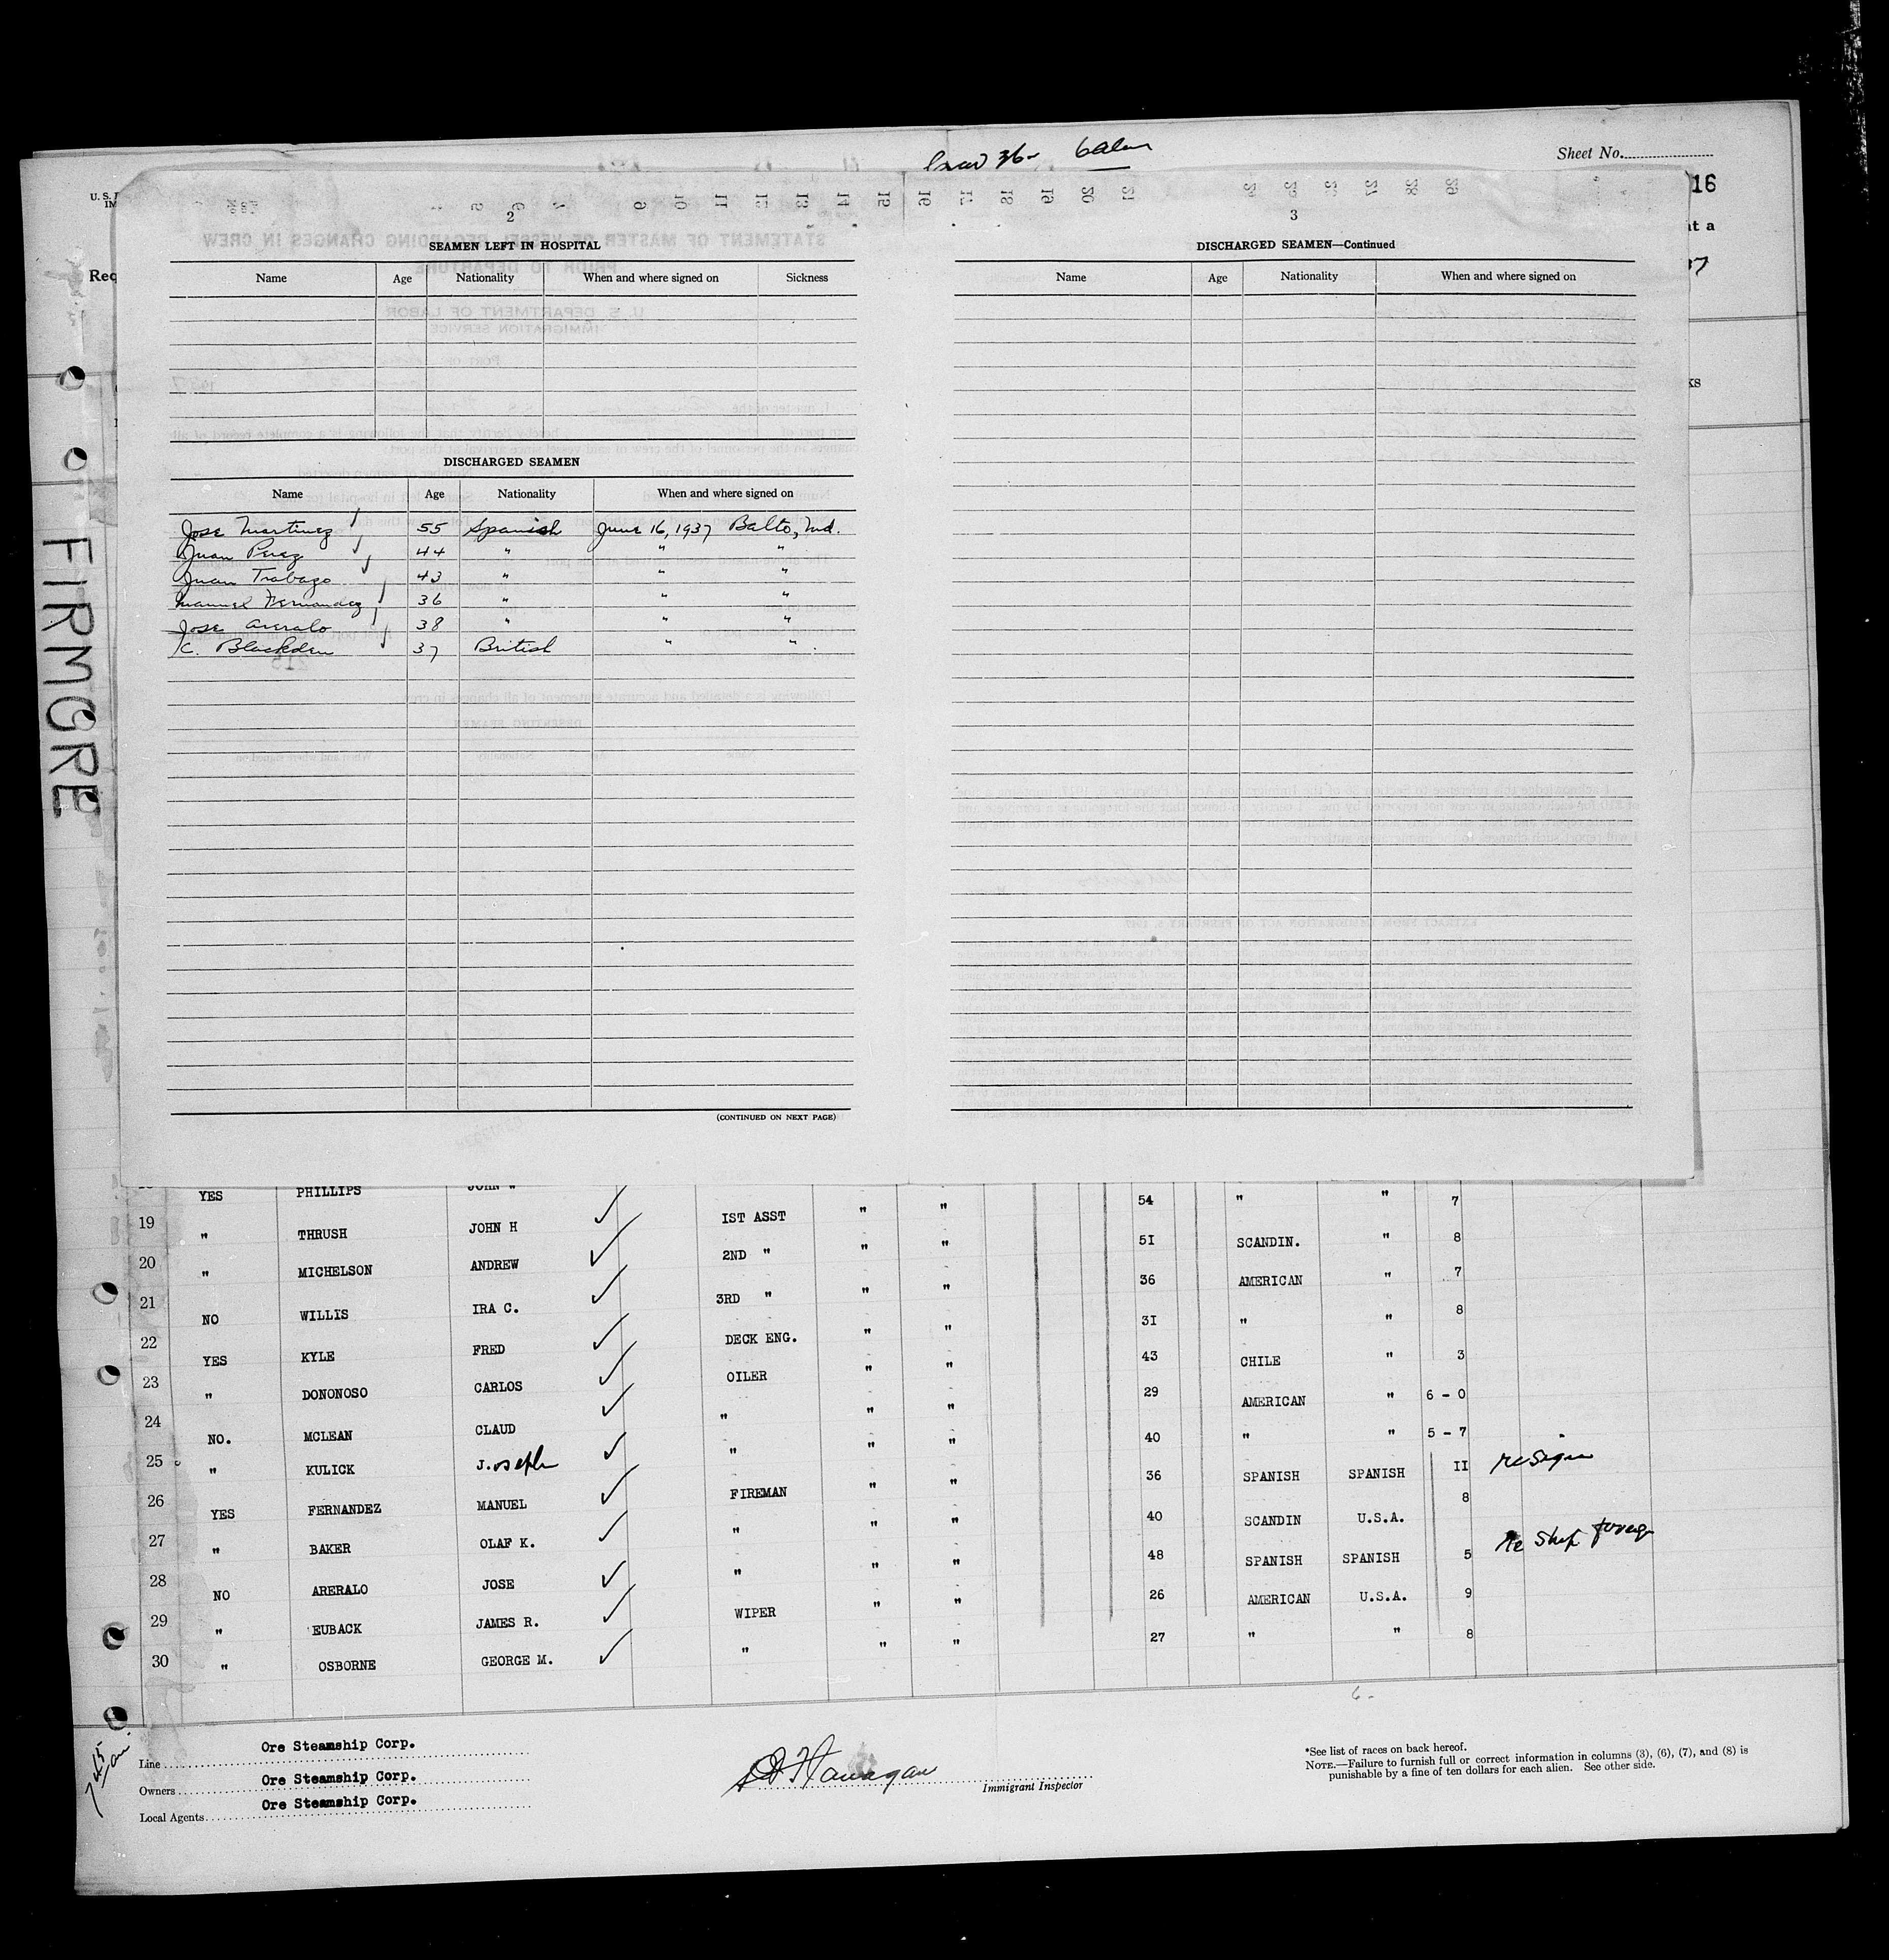 Sheet No.
16
U. S.
IM
it a
Req
37
ks
FIRMORE
2
SEAMEN LEFT IN HOSPITAL
Name Age Nationality When and where signed on Sickness
DISCHARGED SEAMEN
Name Age Nationality When and where signed on
Jose Martinez 55 Spanish June 16, 1937 Balto, Md.
Juan Perez 44 " " "
Juan Trabazo 43 " " "
Manuel Fernandez 36 " " "
Jose Areralo 38 " " "
K. Blackden 37 British " "
(CONTINUED ON NEXT PAGE)
3
DISCHARGED SEAMEN—Continued
Name Age Nationality When and where signed on
YES PHILLIPS JOHN W 54 " " 7
19 " THRUSH JOHN H IST ASST " " 5I SCANDIN. " 8
20 " MICHELSON ANDREW 2ND " " " 36 AMERICAN " 7
21 NO WILLIS IRA C. 3RD " " " 3I " " 8
22 YES KYLE FRED DECK ENG. " " 43 CHILE " 3
23 " DONONOSO CARLOS OILER " " 29 AMERICAN " 6 - 0
24 NO. MCLEAN CLAUD " " " 40 " " 5 - 7
25 " KULICK J.oseph " " " 36 SPANISH SPANISH II resign
26 YES FERNANDEZ MANUEL FIREMAN " " 40 SCANDIN U.S.A. 8
27 " BAKER OLAF K. " " " 48 SPANISH SPANISH 5 Re Ship foreign
28 NO ARERALO JOSE " " " 26 AMERICAN U.S.A. 9
29 " EUBACK JAMES R. WIPER " " 27 " " 8
30 " OSBORNE GEORGE M. " " "
6 -
7 45 am.
Line Ore Steamship Corp.
Owners Ore Steamship Corp.
Local Agents Ore Steamship Corp.
Flanagan
Immigrant Inspector
*See list of races on back hereof.
NOTE.—Failure to furnish full or correct information in columns (3), (6), (7), and (8) is
punishable by a fine of ten dollars for each alien. See other side.